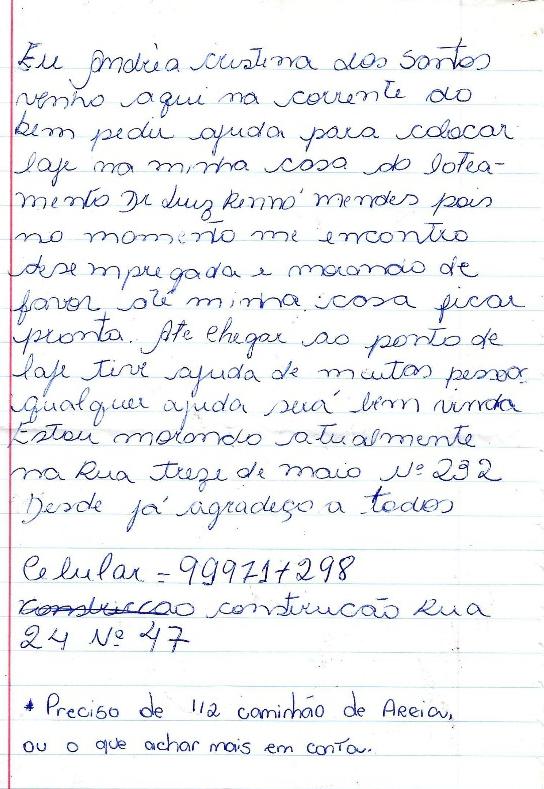 Eu Andréa cristina dos Santos
venho aqui na corrente do
bem pedir ajuda para colocar
laje na minha casa do lotea-
mento Dr Luiz Rennó mendes pois
no momento me encontro
desempregada e morando de
favor até minha casa ficar
pronta. Ate chegar ao ponto de
laje tive ajuda de muitas pessoas
qualquer ajuda será bem vinda
Estou morando atualmente
na Rua treze de maio Nº 232
Desde já agradeço a todos
Celular = 99971+298
construcão Rua
24 Nº 47
* Preciso de 1/2 caminhão de Areia,
ou o que achar mais em conta.